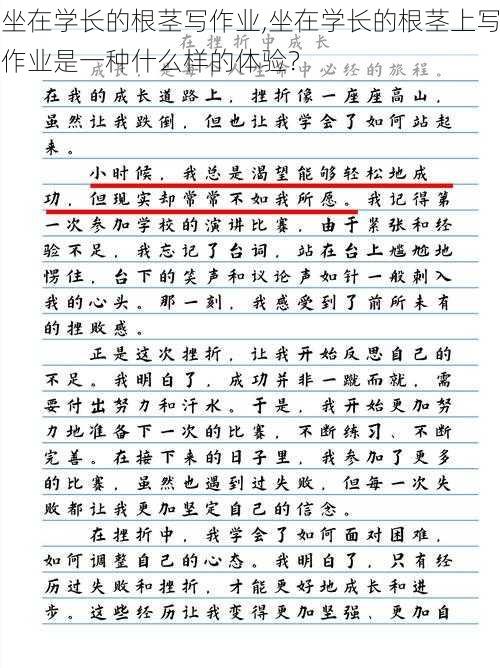 坐在学长的根茎写作业,坐在学长的根茎上写
作业是一种什么样的体验?
在挫折中成长
成长，是每个人生命中必经的旅程。
在我的成长道路上，挫折像一座座高山，
虽然让我跌倒，但也让我学会了如何站起
来。
小时候，我总是渴望能够轻松地成
功，但现实却常常不如我所愿。我记得第
一次参加学校的演讲比赛，由于紧张和经
验不足，我忘记了台词，站在台上尴尬地
愣住，台下的笑声和议论声如针一般刺入
我的心头。那一刻，我感受到了前所未有
的挫败感。
正是这次挫折，让我开始反思自己的
不足。我明白了，成功并非一蹴而就，需
要付出努力和汗水。于是，我开始更加努
力地准备下一次的比赛，不断练习、不断
完善。在接下来的日子里，我参加了更多
的比赛，虽然也遇到过失败，但每一次失
败都让我更加坚定自己的信念。
在挫折中，我学会了如何面对困难，
如何调整自己的心态。我明白了，只有经
历过失败和挫折，才能更好地成长和进
步。这些经历让我变得更加坚强、更加自